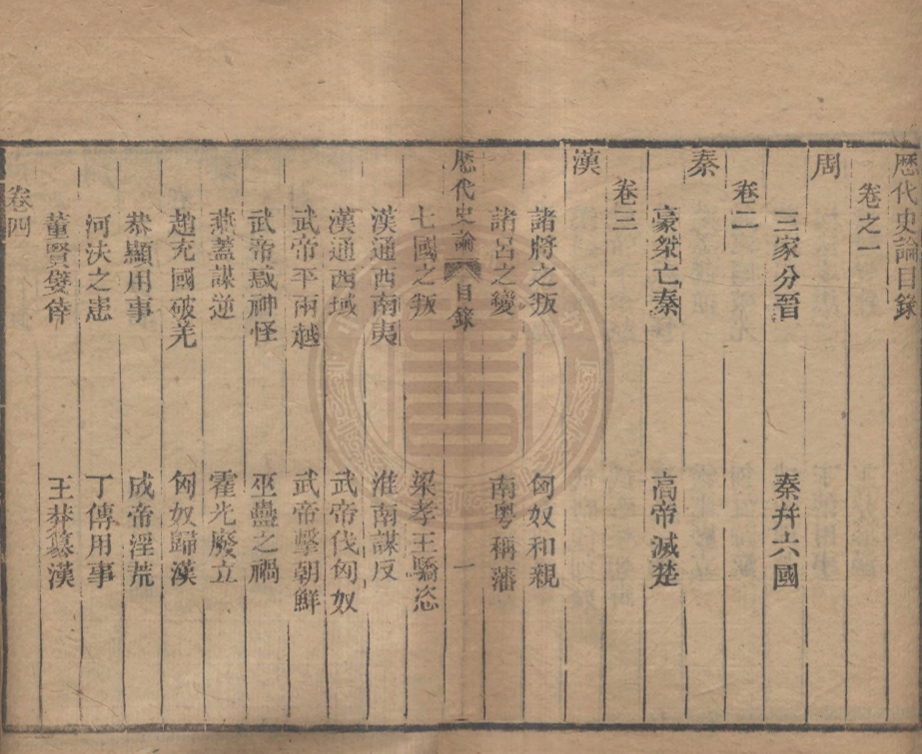 歷代史論目錄
卷之一
周
三家分晉 秦幷六國
卷二
秦
豪桀亡秦 高帝滅楚
卷三
漢
諸將之叛 匈奴和親
諸呂之變 南粵稱藩
歷代史論 目錄 一
七國之叛 梁孝王驕恣
漢通西南夷 淮南謀反
漢通西域 武帝伐匈奴
武帝平兩越 武帝擊朝鮮
武帝惑神怪 巫蠱之禍
燕蓋謀逆 霍光廢立
趙充國破羌 匈奴歸漢
恭顯用事 成帝淫荒
河決之患 丁傅用事
董賢嬖倖 王莽簒漢
卷四